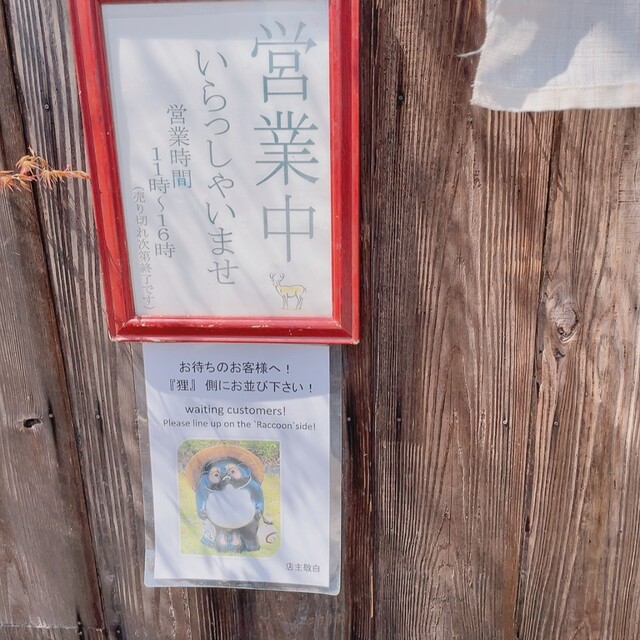 営業中
いらっしゃいませ
営業時間
11時～16時
(売り切れ次第終了です)
お待ちのお客様へ！
『狸』側にお並び下さい！
waiting customers!
Please line up on the `Raccoon`side!
店主敬白